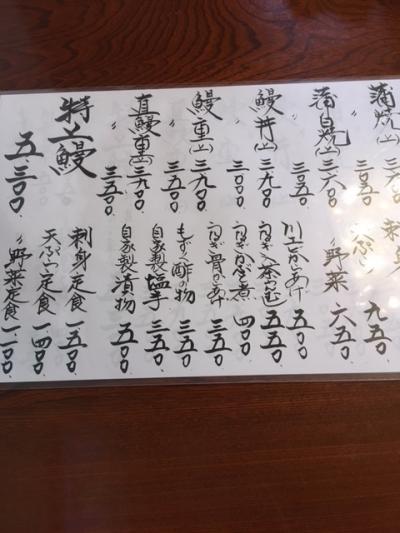 蒲焼(上)
三六〇〇
〃 三〇五〇
蒲白焼(上)
三六〇〇
〃 三〇五〇
鰻丼(上)
三九〇〇
〃 三〇〇〇
鰻重(上)
三九〇〇
〃 三五〇〇
直鰻重(上)
三九〇〇
〃 三五〇〇
特上鰻
五、三〇〇
刺身
天ぷら 九五〇
〃野菜 六五〇
川エビからあけ 五〇〇
うなぎ入茶わんむし 五五〇
うなぎかぶと煮 四〇〇
うなぎ骨からあげ 三五〇
もずく酢の物 三五〇
自家製塩辛 三五〇
自家製漬物 五〇〇
刺身定食 一、五〇〇
天ぷら定食 一、四〇〇
〃野菜定食 一、一〇〇